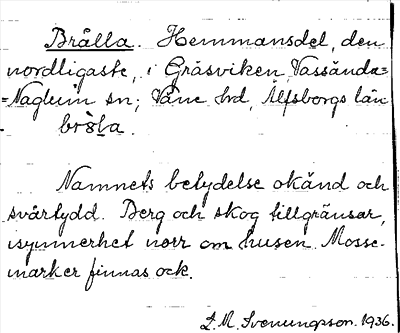 Brålla. Hemmansdel, den
nordligaste, i Gräsviken, Vassända=
=Naglum sn; Väne hd, Älfsborgs län
Namnets betydelse okänd och
svårtydd. Berg och skog tillgränsar,
isynnerhet norr om husen. Mosse-
marker finnas ock.
L. M. Svenungsson. 1936.